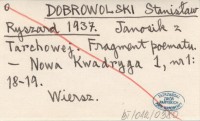 DOBROWOLSKI Stanisław
Ryszard 1937. Janosik z
Tarchowej. Fragment poematu.
— Nowa Kwadryga 1, nr 1:
18-19.
Wiersz.